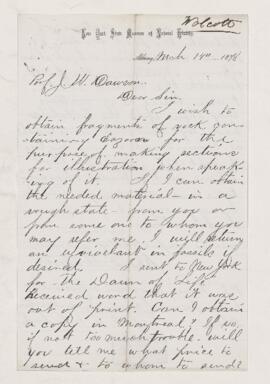 Walcott
New York State Museum of Natural History,
Albany, Mch 14th 1878
Prof J. W. Dawson
Dear Sir
I wish to
obtain fragments of rock con-
taining Eozoon for the
purpose of making sections
for illustration when speak-
ing of it. If I can obtain
the needed material - in a
rough state - from you or
from some one to whom you
may refer me I will return
an equivalent in fossils if
desired. I sent to New York
for the Dawn of Life.
Received word that it was
out of print. Can I obtain
a copy in Montreal? If so,
if not too much trouble, will
you tell me what price to
send & to whom to send?